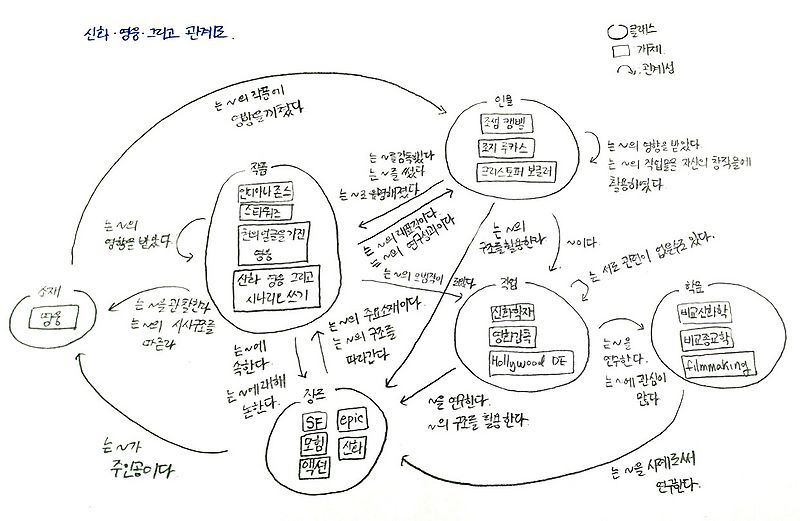 신화·영웅·그리고 관계도.
클래스
개체
관계성
는 ~의 작품에
영향을 끼쳤다
인물
조셉 캠벨
조지 루카스
크리스토퍼 보글러
는 ~의 영향을 받았다
는 ~의 작업물을 자신의 창작물에
활용하였다
는 ~를 감독했다
는 ~를 썼다
는 ~로 유명해졌다
작품
인디아나 존스
스타워즈
천의 얼굴을 가진
영웅
신화 영웅 그리고
시나리오 쓰기
는 ~의
영향을 받았다
는 ~의 대표작이다.
는 ~의 연구성과이다
는 ~의
구조를 활용한다
~이다.
는 서로 관련이 있을수도 있다.
소재
영웅
는 ~을 관찰한다
는 ~의 서사구조를
따른다
직업
신화학자
영화감독
Hollywood DE
학문
비교신화학
비교종교학
filmmaking
는 ~을
연구한다.
는 ~에 관심이
많다
는 ~에
속한다.
는 ~에 대해
논한다.
는 ~의 주요소재이다.
는 ~의 구조를
따라간다
장르
SF
epic
모험
신화
액션
~을 연구한다.
~의 구조를 활용한다.
는 ~가
주인공이다.
는 ~을 사례로써
연구한다.